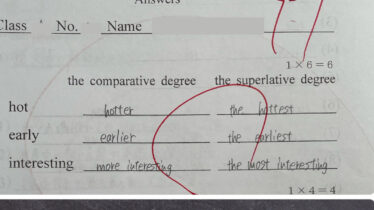 Answers
Class No. Name
1 × 6 = 6
the comparative degree the superlative degree
hot hotter the hottest
early earlier the earliest
interesting more interesting the most interesting
1 × 4 = 4